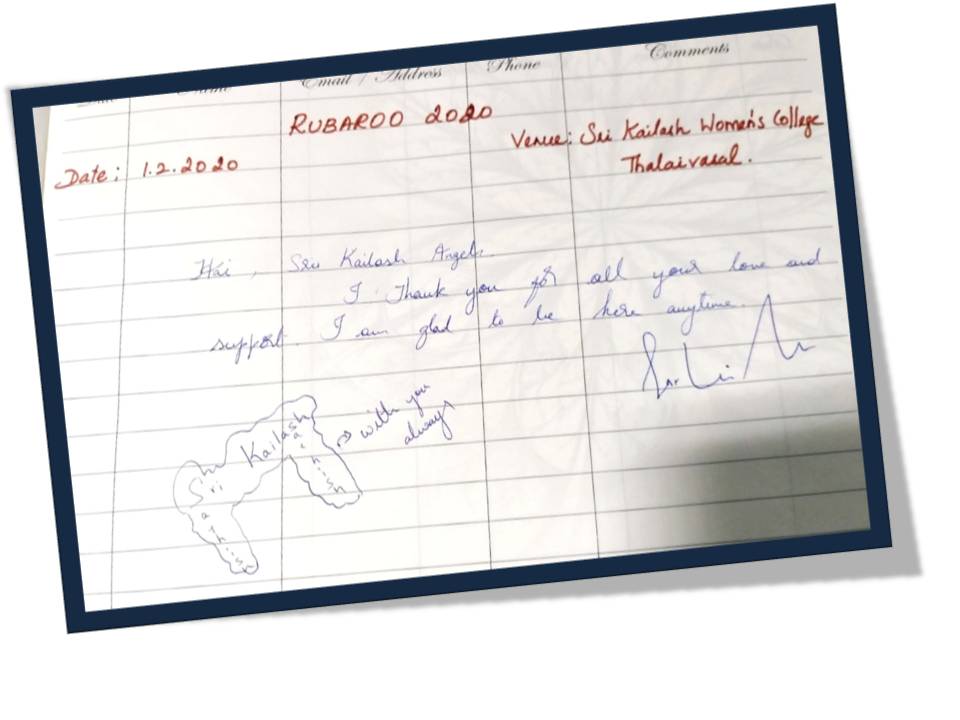 Email / Address Phone Comments
RUBAROO 2020
Date: 1.2.2020 Venue: Sri Kailash Women's College
Thalaivasal.
Hai, Sri Kailash Angels.
I Thank you for all your love and
support. I am glad to be here anytime.
Sri Kailash
with you
always